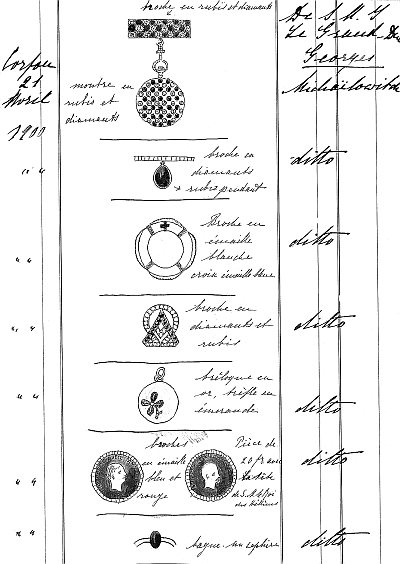 broche en rubis et diamants
De S. M. I
Le Grand-Duc
Georges
Michaïlowitch
Corfou
21
Avril
1900
montre en
rubis et
diamants
" "
broche en
diamants
rubis pendant
ditto
" "
Broche en
émaille
blanche
croix émaille bleue
ditto
" "
broche en
diamants et
rubis
ditto
" "
brêloque en
or, trèfle en
émeraude
ditto
" "
broches
en émaille
bleu et
rouge
Pièce de
20 fr avec
la tête
de S. M. le Roi
des Hellènes
ditto
" "
bague un saphire
ditto